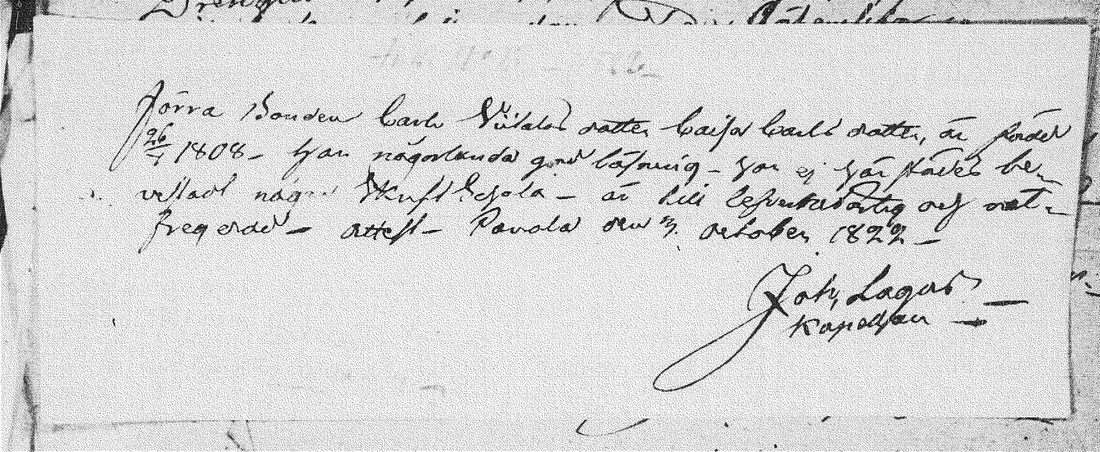 Förra Bonden Carl Viitalas dotter Caisa Carls dotter, är född
26/1 1808 – har någorlunda god läsning – har ej här städes be-
vistadt någon Skrift Schola – är till lefvernet ärlig och
fregdad – attest – Pavola den 3 october 1822 –
Joh, Lagus –
Kapellan –